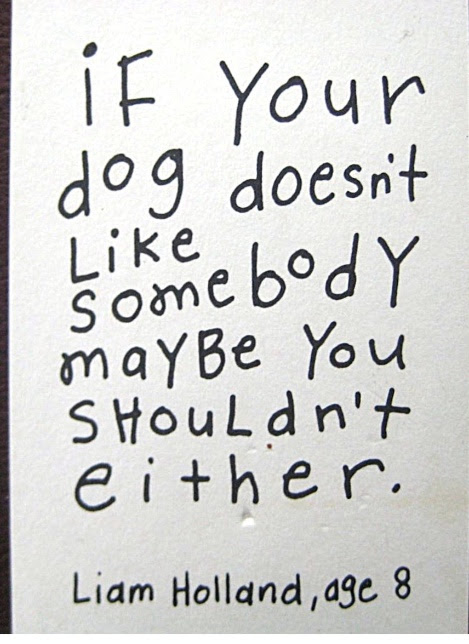 iF Your
dog doesn't
Like
somebody
mayBe You
SHouLdn't
either.
Liam Holland, age 8